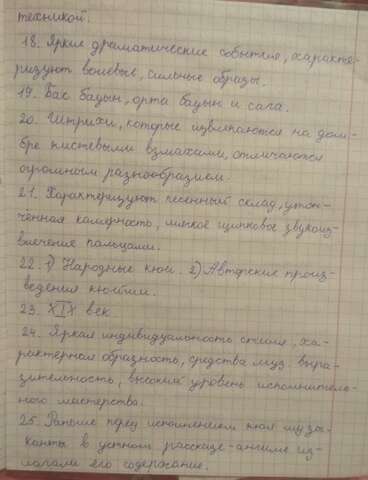 техникой.
18. Яркие драматические события, характе-
ризуют волевые, сильные образы.
19. Бас бацын, орта бацын и сага.
20. Штрихи, которые извлекаются на дом-
бре кистевыми взмахами, отличаются
огромным разнообразием.
21. Характеризуют песенный склад, утон-
чённая камерность, мягкое щипковое звукоиз-
влечение пальцами.
22. 1) Народные кюи. 2) Авторские произ-
ведения кюйши.
23. XIX век
24. Яркая индивидуальность стиля, ха-
рактерная образность, средства муз. выра-
зительность, высокий уровень исполнительс-
ного мастерства.
25. Раньше перед исполнением кюя музы-
канты в устном рассказе-ангиме из-
лагали его содержание.